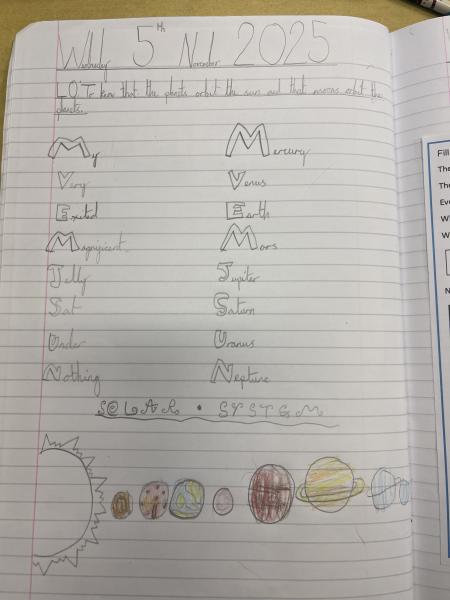 Wednesday 5th November 2025
LO: To know that the planets orbit the sun and that moons orbit the
planets.
My Mercury
Very Venus
Exited Earth
Magnificent Mars
Jelly Jupiter
Sat Saturn
Under Uranus
Nothing Neptune
SOLAR • SYSTEM
Fill
The
The
Eve
Wh
W
N